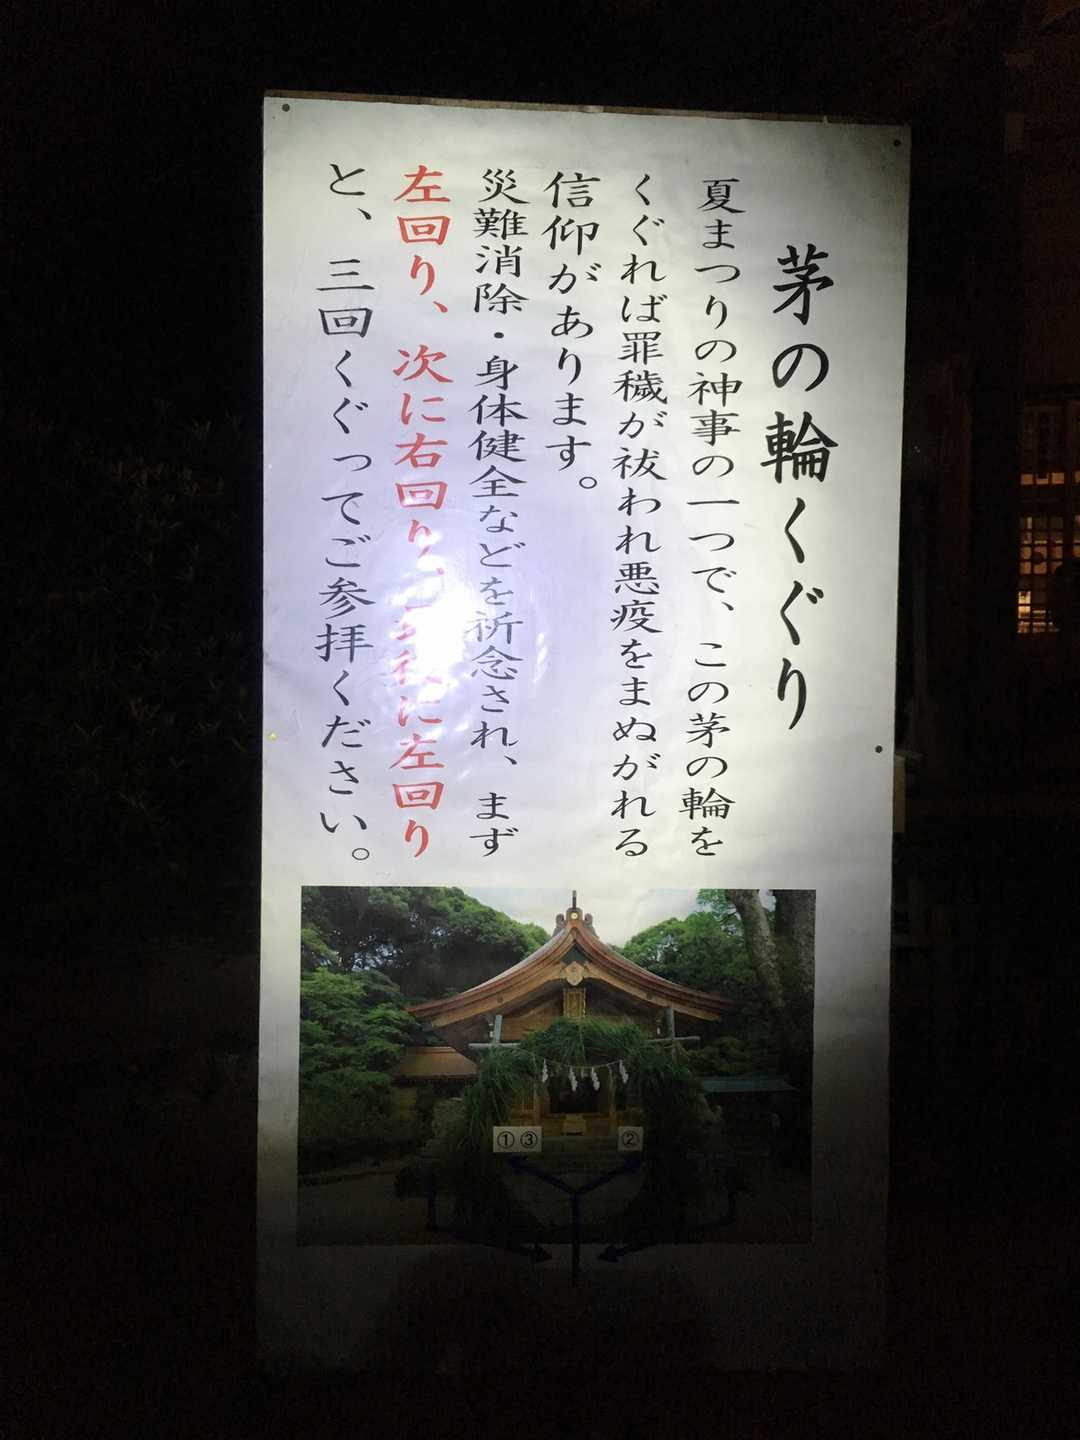 茅の輪くぐり
夏まつりの神事の一つで、この茅の輪を
くぐれば罪穢が祓われ悪疫をまぬがれる
信仰があります。
災難消除・身体健全などを祈念され、まず
左回り、次に右回り、最後に左回り
と、三回くぐってご参拝ください。
①③
②